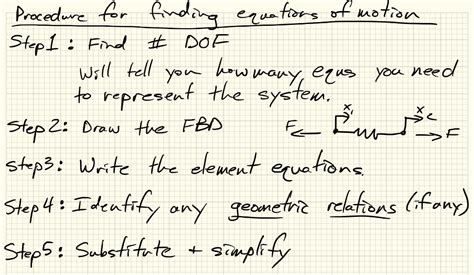 Procedure for finding equations of motion
Step1: Find # DOF
Will tell you how many equs you need
to represent the system.
Step2: Draw the FBD
F x₁ x₂ F
Step3: Write the element equations.
Step4: Identify any geometric relations (if any)
Step5: Substitute + simplify